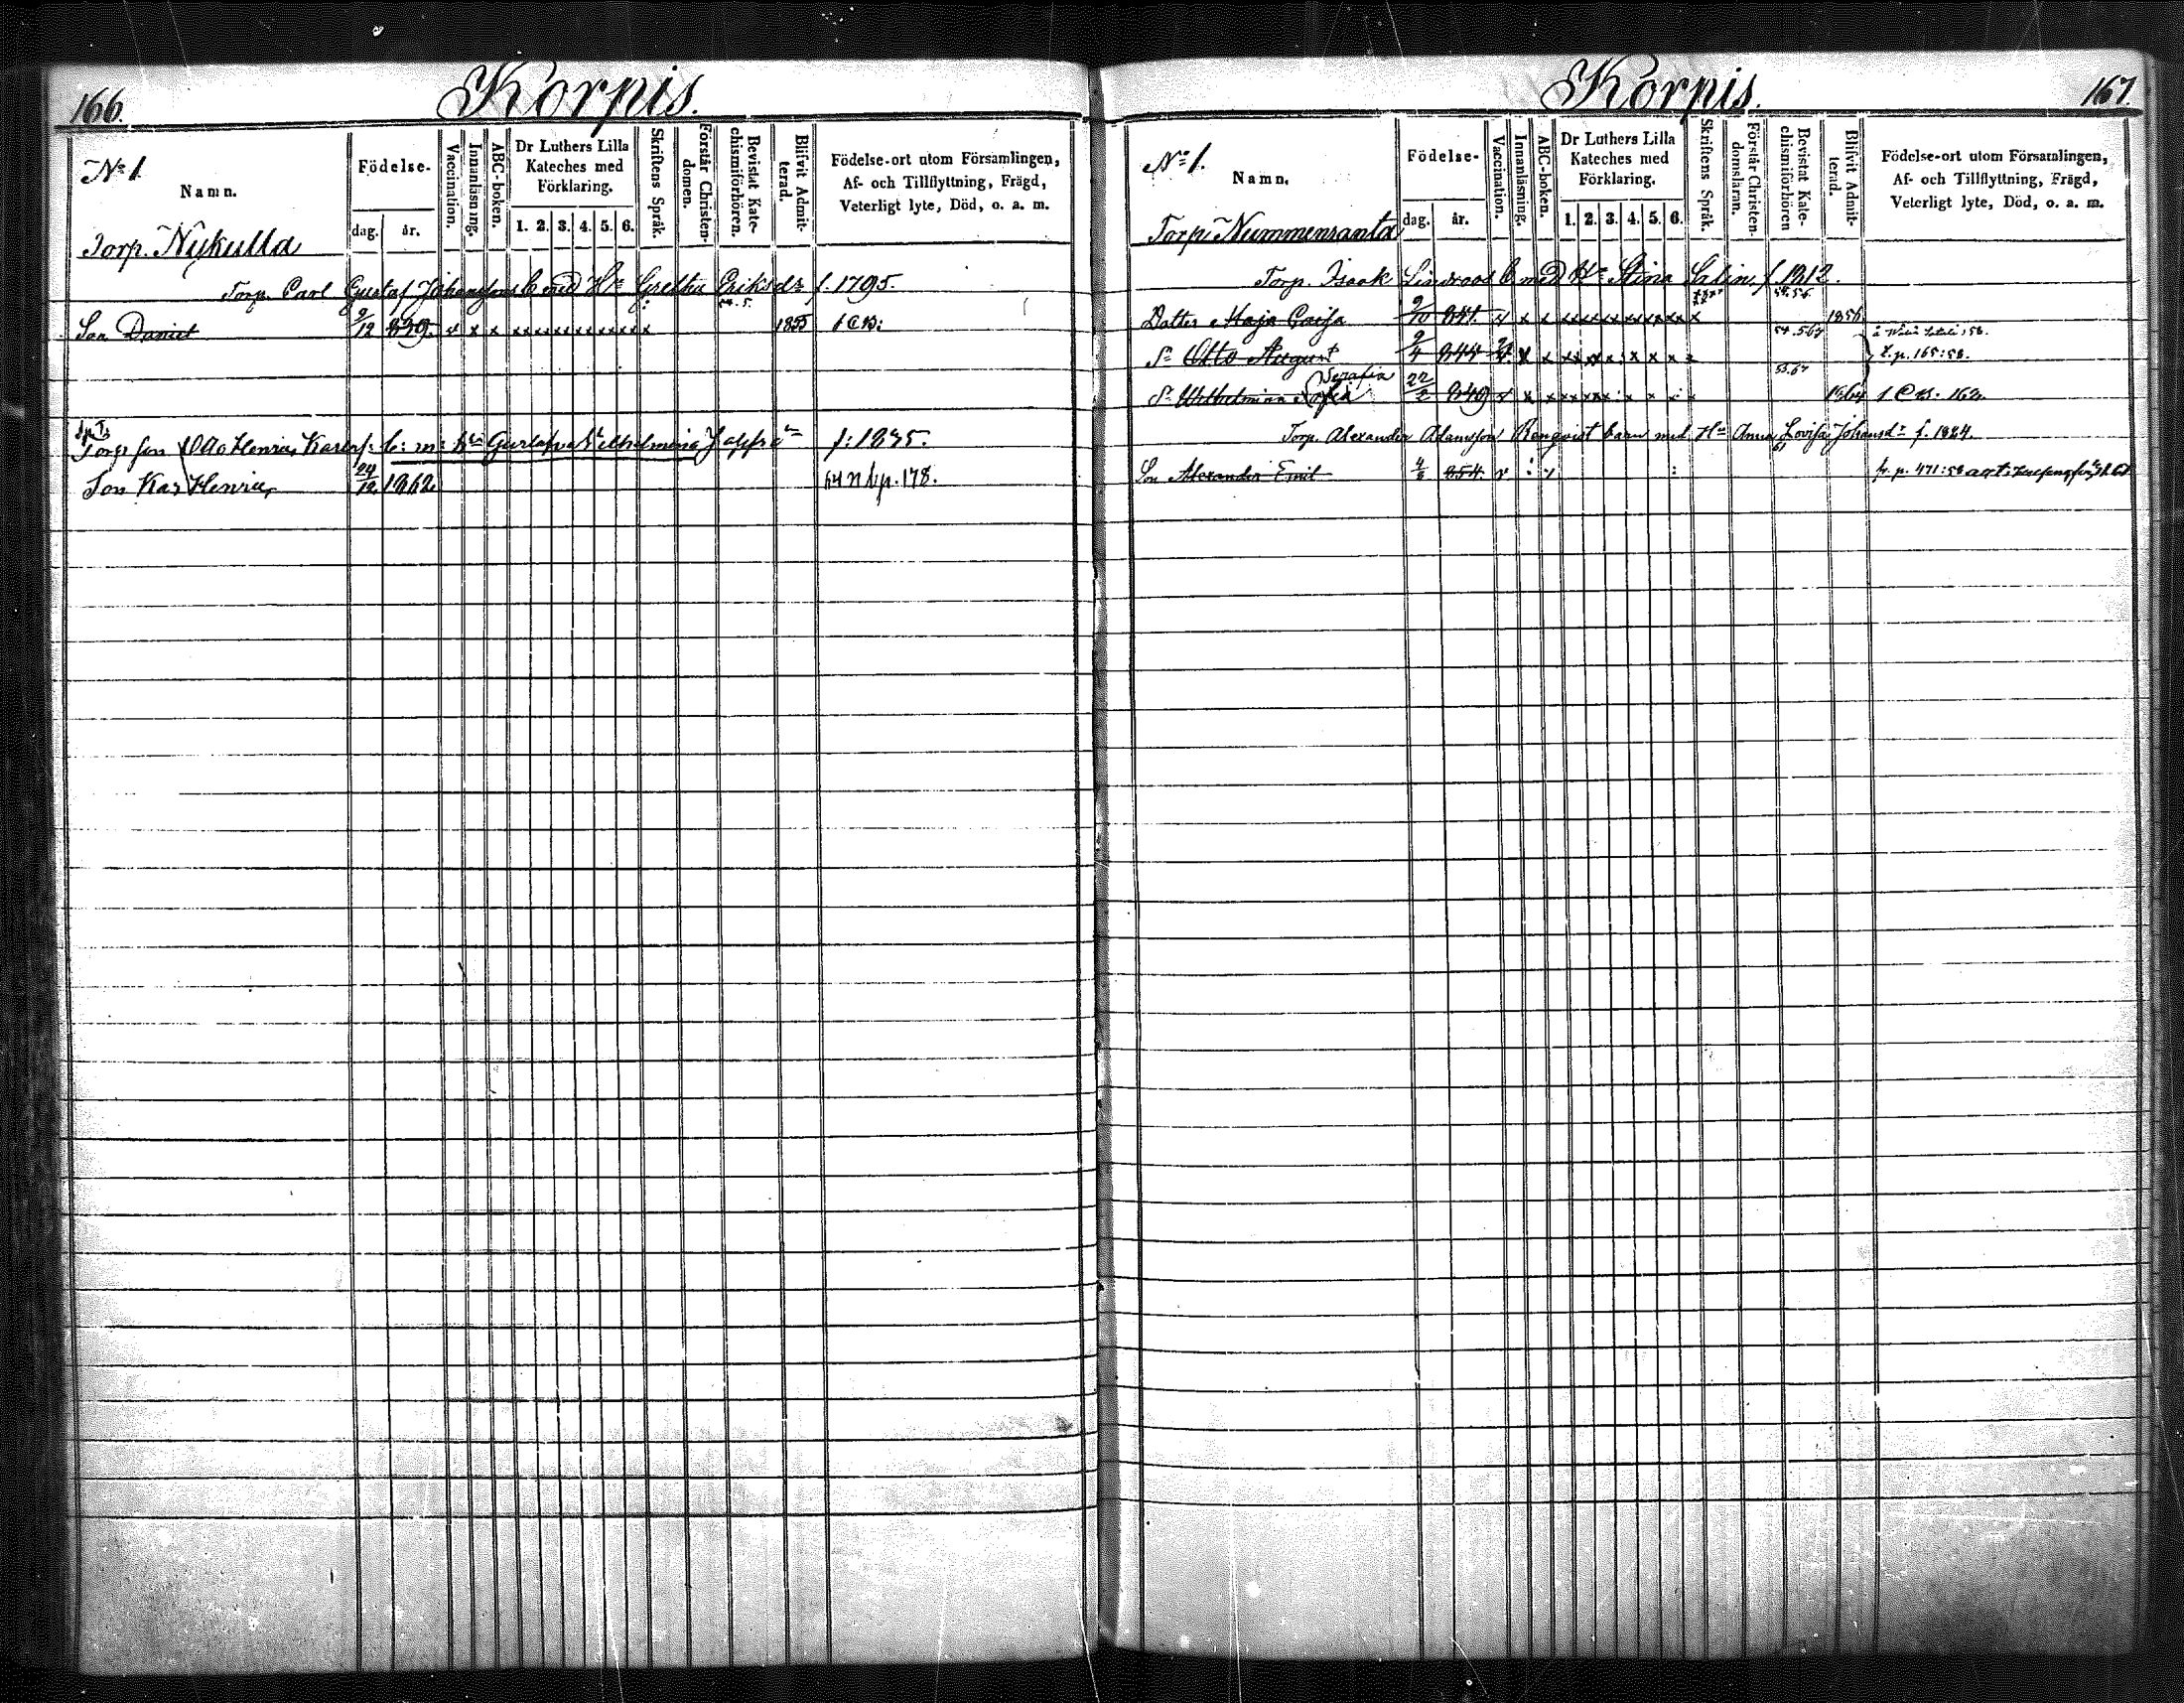 166.
Korpis.
No 1
Namn.
Födelse-
dag. år.
Vaccination.
Innanläsning.
ABC-boken.
Dr Luthers Lilla Kateches med Förklaring.
1. 2. 3. 4. 5. 6.
Skriftens Språk.
Förstår Christen-domen.
Bevistat Kate-chismiförhören.
Blifvit Admit-terad.
Födelse-ort utom Församlingen, Af- och Tillflyttning, Frägd, Veterligt lyte, Död, o. a. m.
Torp. Nykulla
Torp. Carl Gustaf Johanssons b. med Hu Gretha Eriksdr f. 1795.
Son Daniel 9/12 839. v x x x x x x x x x x x x 1855
Torps son Otto Henric Karlss: b: m: hu Gustafva Wilhelmina f: 1835.
Son Karl Henric, 24/12 1862 p. 178.
167.
Korpis.
No 1.
Namn.
Födelse-
dag. år.
Vaccination.
Innanläsning.
ABC-boken.
Dr Luthers Lilla Kateches med Förklaring.
1. 2. 3. 4. 5. 6.
Skriftens Språk.
Förstår Christen-domsläran.
Bevistat Kate-chismiförhören
Blifvit Admit-terad.
Födelse-ort utom Församlingen, Af- och Tillflyttning, Frägd, Veterligt lyte, Död, o. a. m.
Torp. Nummenranta
Torp. Isaak Lindroos b med Hu Stina Salin f. 1812.
Dotter Maja Caisa 9/10 841. v x x x x x x x x x x x x 1856
Sn Otto August 9/4 844 x x x x x x x x x p. 165:58.
Serafia
Wilhelmina Sofia 22/2 849 v x x x x x x x x x 1864
Torp. Alexander Adamsson Renqvist barn med Hu Anna Lovisa Johansdr f. 1824.
Son Alexander Emil 854. v p. 471:58